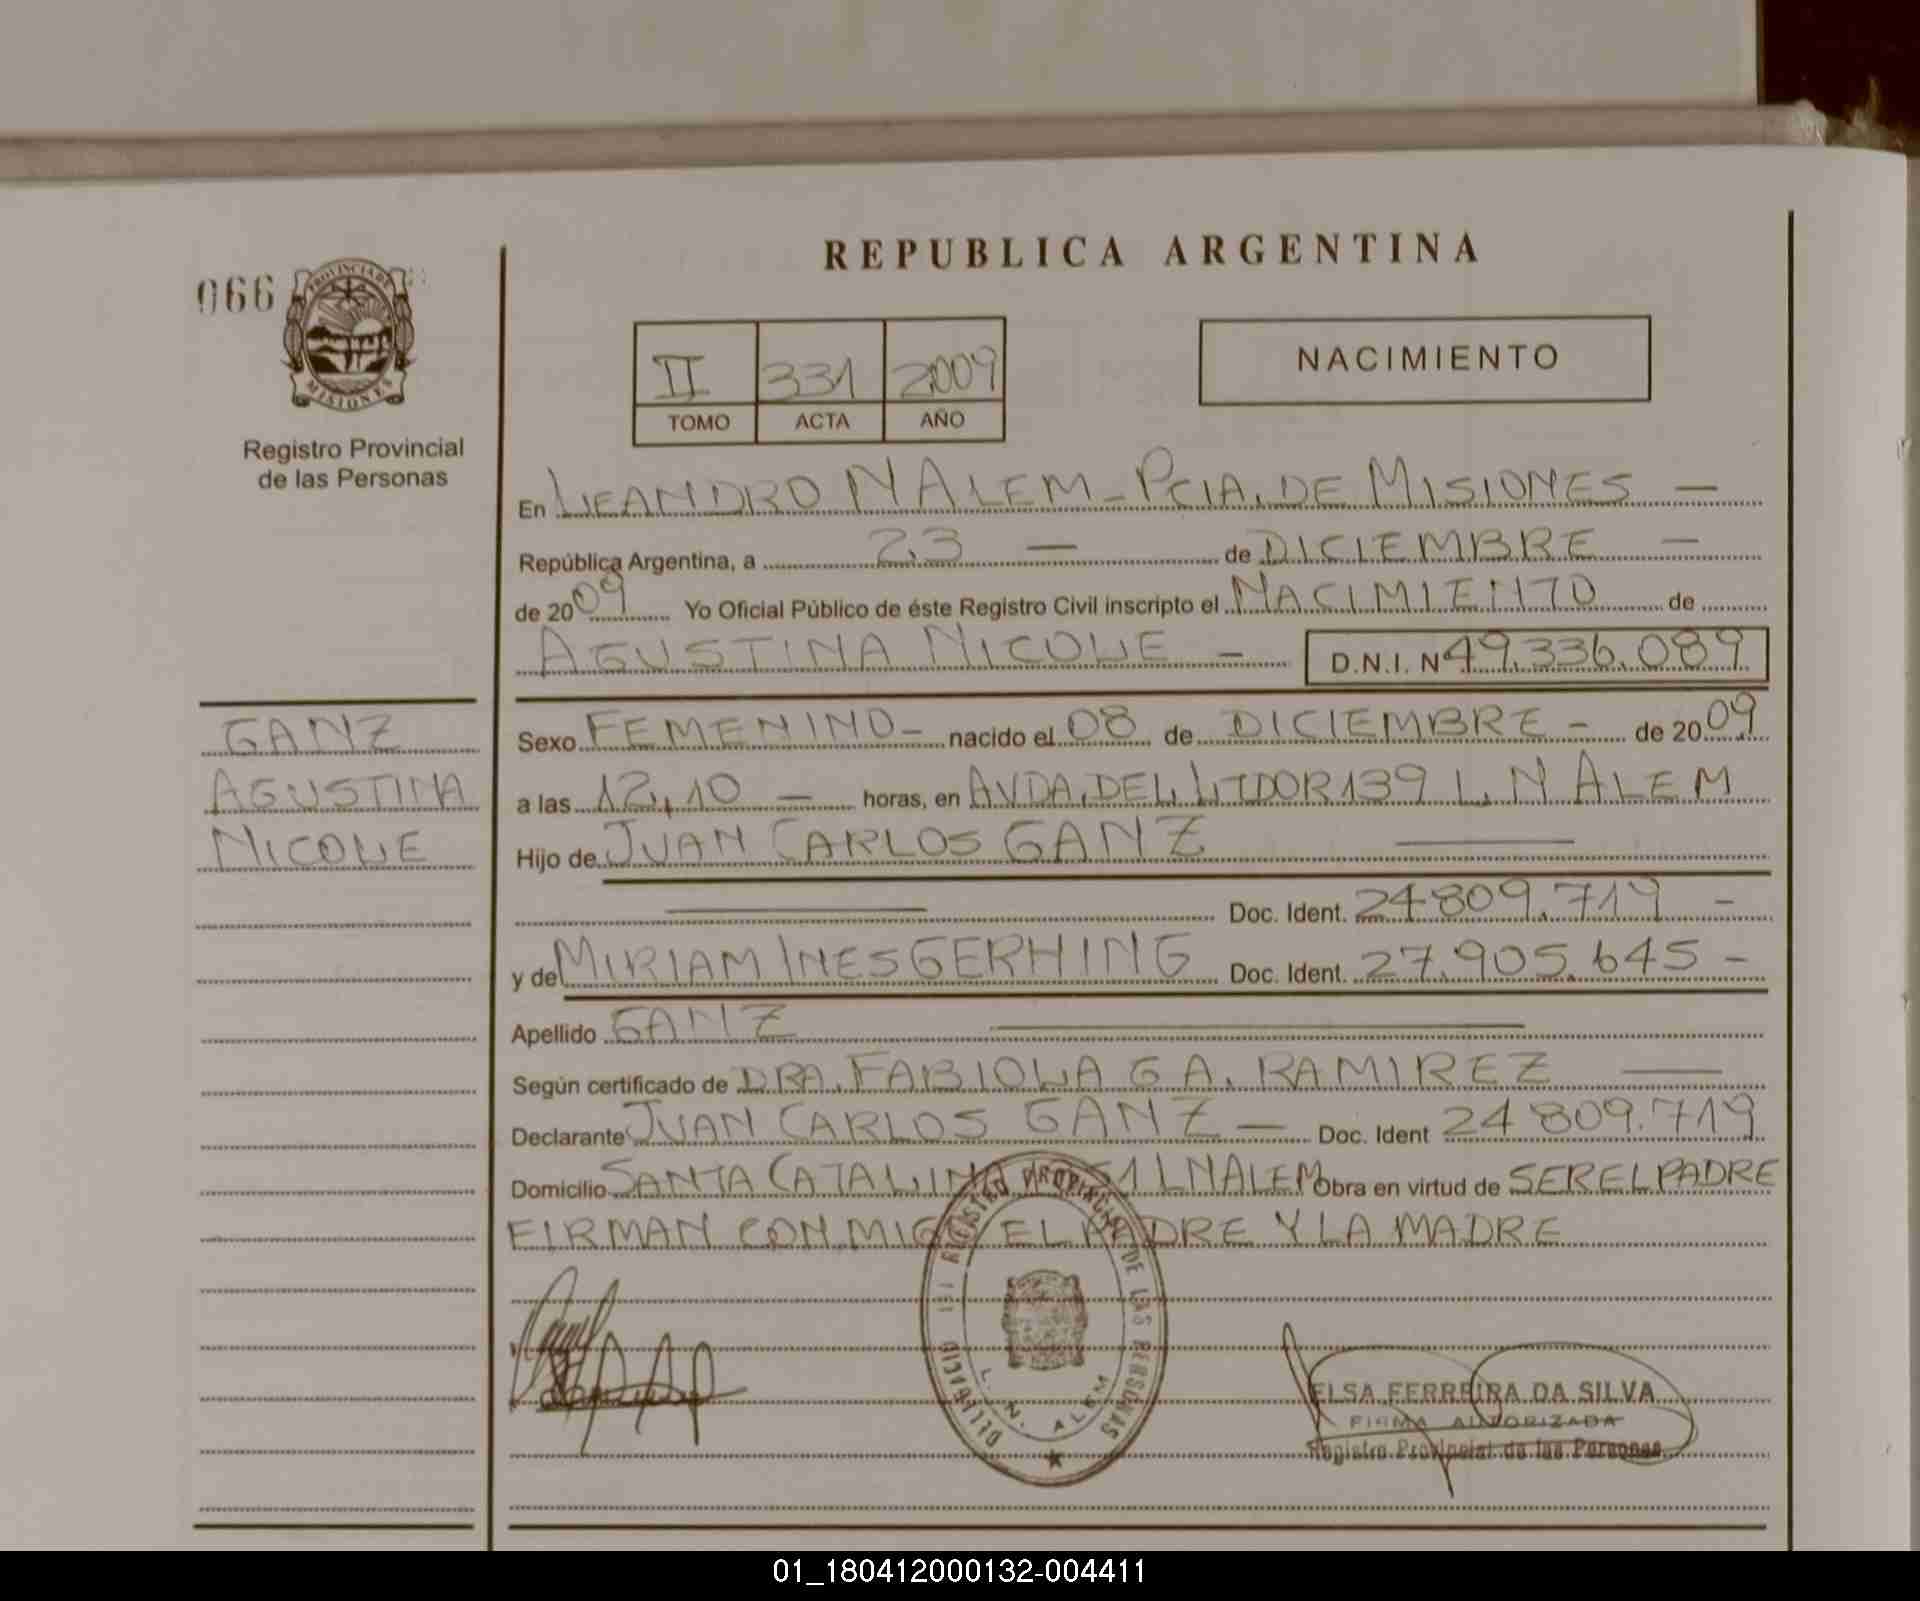 REPUBLICA ARGENTINA
066
PROVINCIA DE
MISIONES
Registro Provincial
de las Personas
II 331 2009
TOMO ACTA AÑO
NACIMIENTO
En LEANDRO N ALEM - PCIA. DE MISIONES —
República Argentina, a 23 — de DICIEMBRE —
de 2009 Yo Oficial Público de éste Registro Civil inscripto el NACIMIENTO de
AGUSTINA NICOLE — D.N.I. Nº 49.336.089
GANZ
AGUSTINA
NICOLE
Sexo FEMENINO - nacido el 08 de DICIEMBRE - de 2009
a las 12,10 — horas, en AVDA. DEL LTDOR 139 L. N ALEM
Hijo de JUAN CARLOS GANZ
Doc. Ident. 24809.719 -
y de MIRIAM INES GERHING Doc. Ident. 27.905.645 -
Apellido GANZ
Según certificado de DRA. FABIOLA G A. RAMIREZ
Declarante JUAN CARLOS GANZ — Doc. Ident 24 809.719
Domicilio SANTA CATALINA L N ALEM Obra en virtud de SER EL PADRE
FIRMAN CON MIGO EL PADRE Y LA MADRE
REGISTRO PROVINCIAL DE LAS PERSONAS
L. N. ALEM
ELSA FERREIRA DA SILVA
FIRMA AUTORIZADA
Registro Provincial de las Personas
01_180412000132-004411